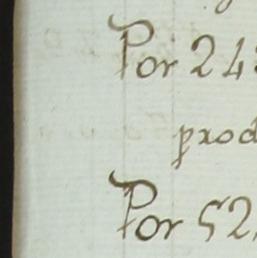 Por 24
prod
Por 52